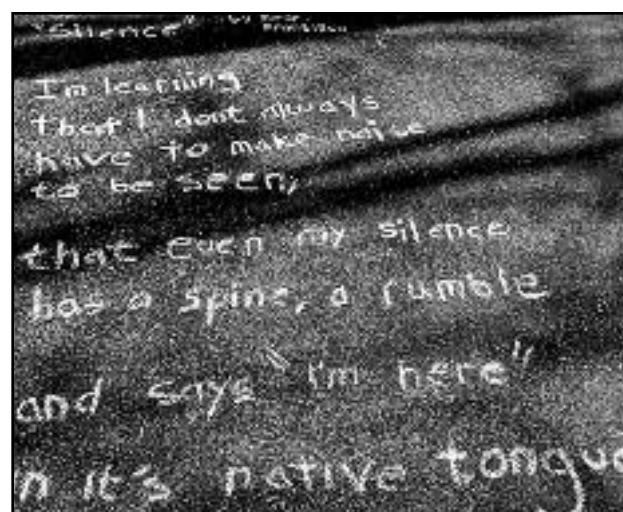 "Silence" by
I'm learning
that I dont always
have to make noise
to be seen,
that even my silence
has a spine, a rumble
and says "I'm here"
n it's native tongue